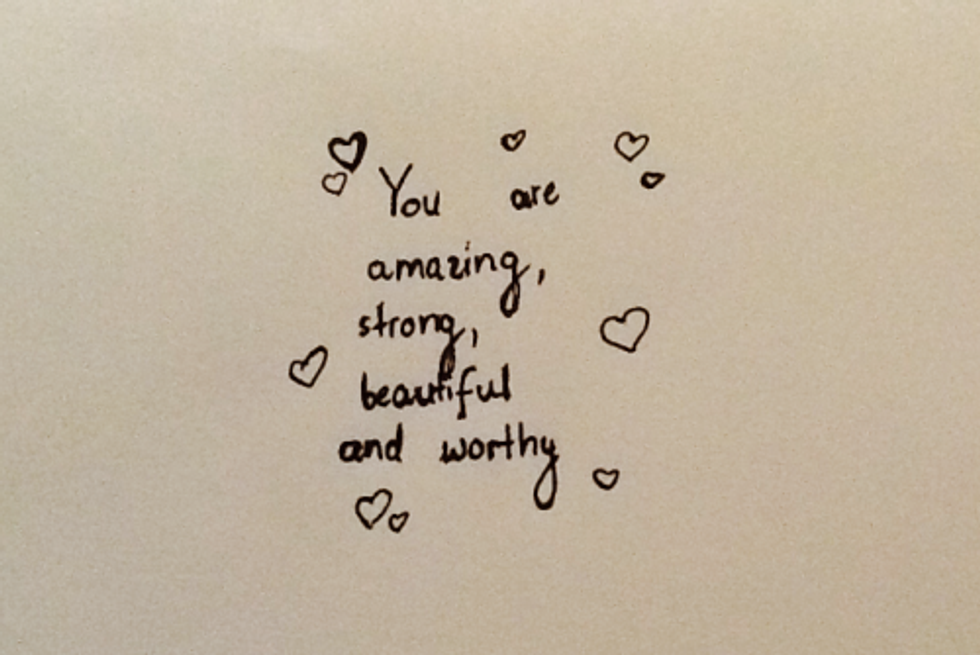 You are
amazing,
strong,
beautiful
and worthy